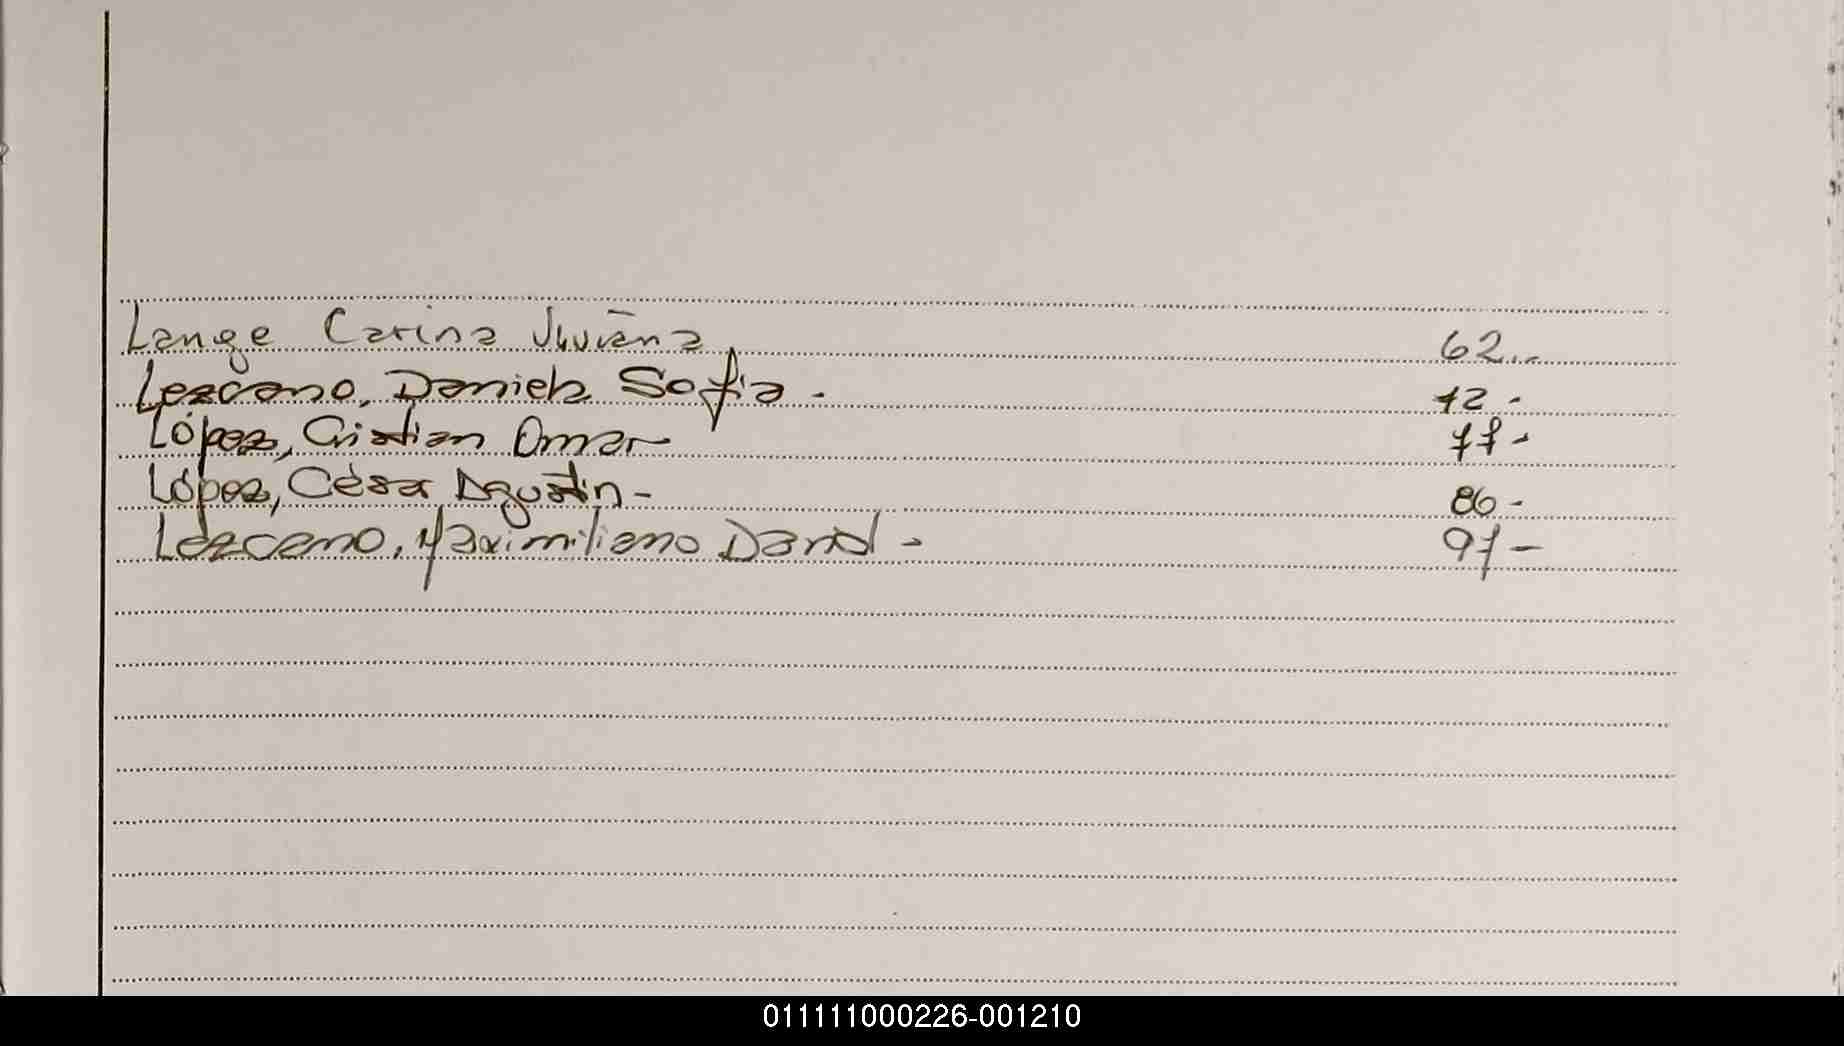 Lange Carina Viviana 62.-
Lezcano, Daniela Sofia - 72 -
López, Cristian Omar 77 -
López, César Agustín - 86 -
Lezcano, Maximiliano David - 97 -
011111000226-001210